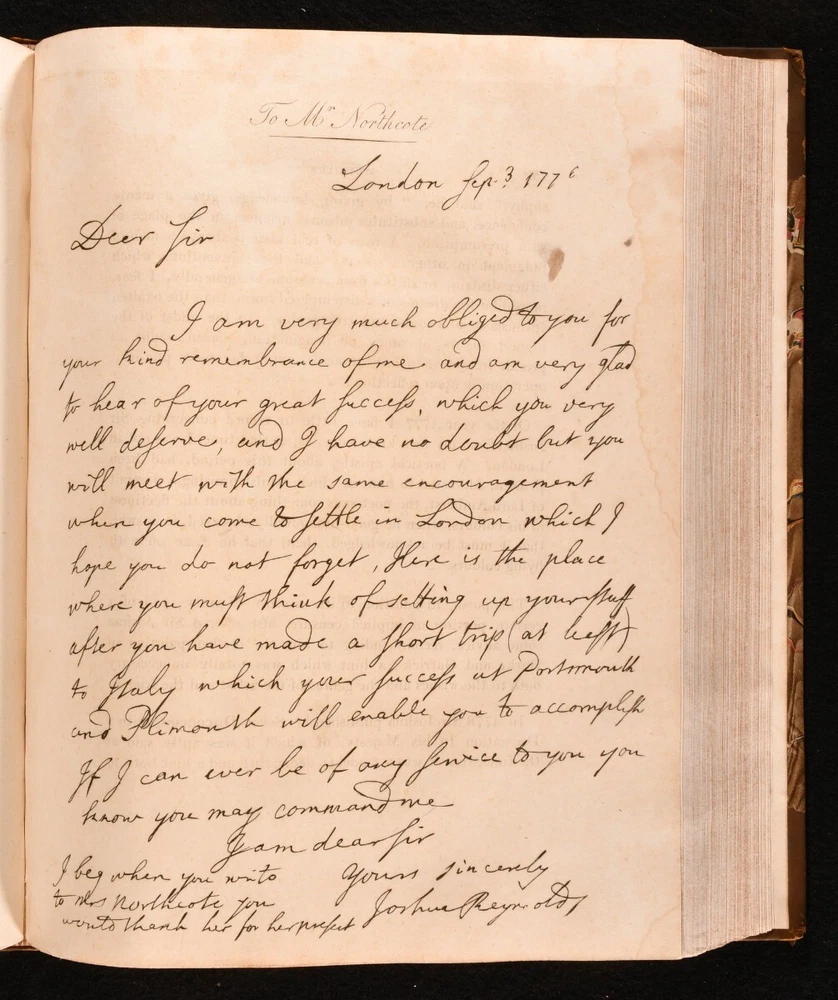 To Mr Northcote
London Sep. 3 1776
Dear Sir
I am very much obliged to you for
your kind remembrance of me and am very glad
to hear of your great succeſs, which you very
well deserve, and I have no doubt but you
will meet with the same encouragement
when you come to settle in London which I
hope you do not forget, Here is the place
where you muſt think of setting up your ſtaff
after you have made a short trip (at leaſt)
to Italy which your succeſs at Portsmouth
and Plimouth will enable you to accomplish
If I can ever be of any service to you you
know you may command me
I am dear Sir
Yours sincerely
Joshua Reynolds
I beg when you write
to Mrs Northcote you
would thank her for her preſent